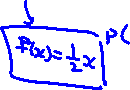 f(x) = ½x P(